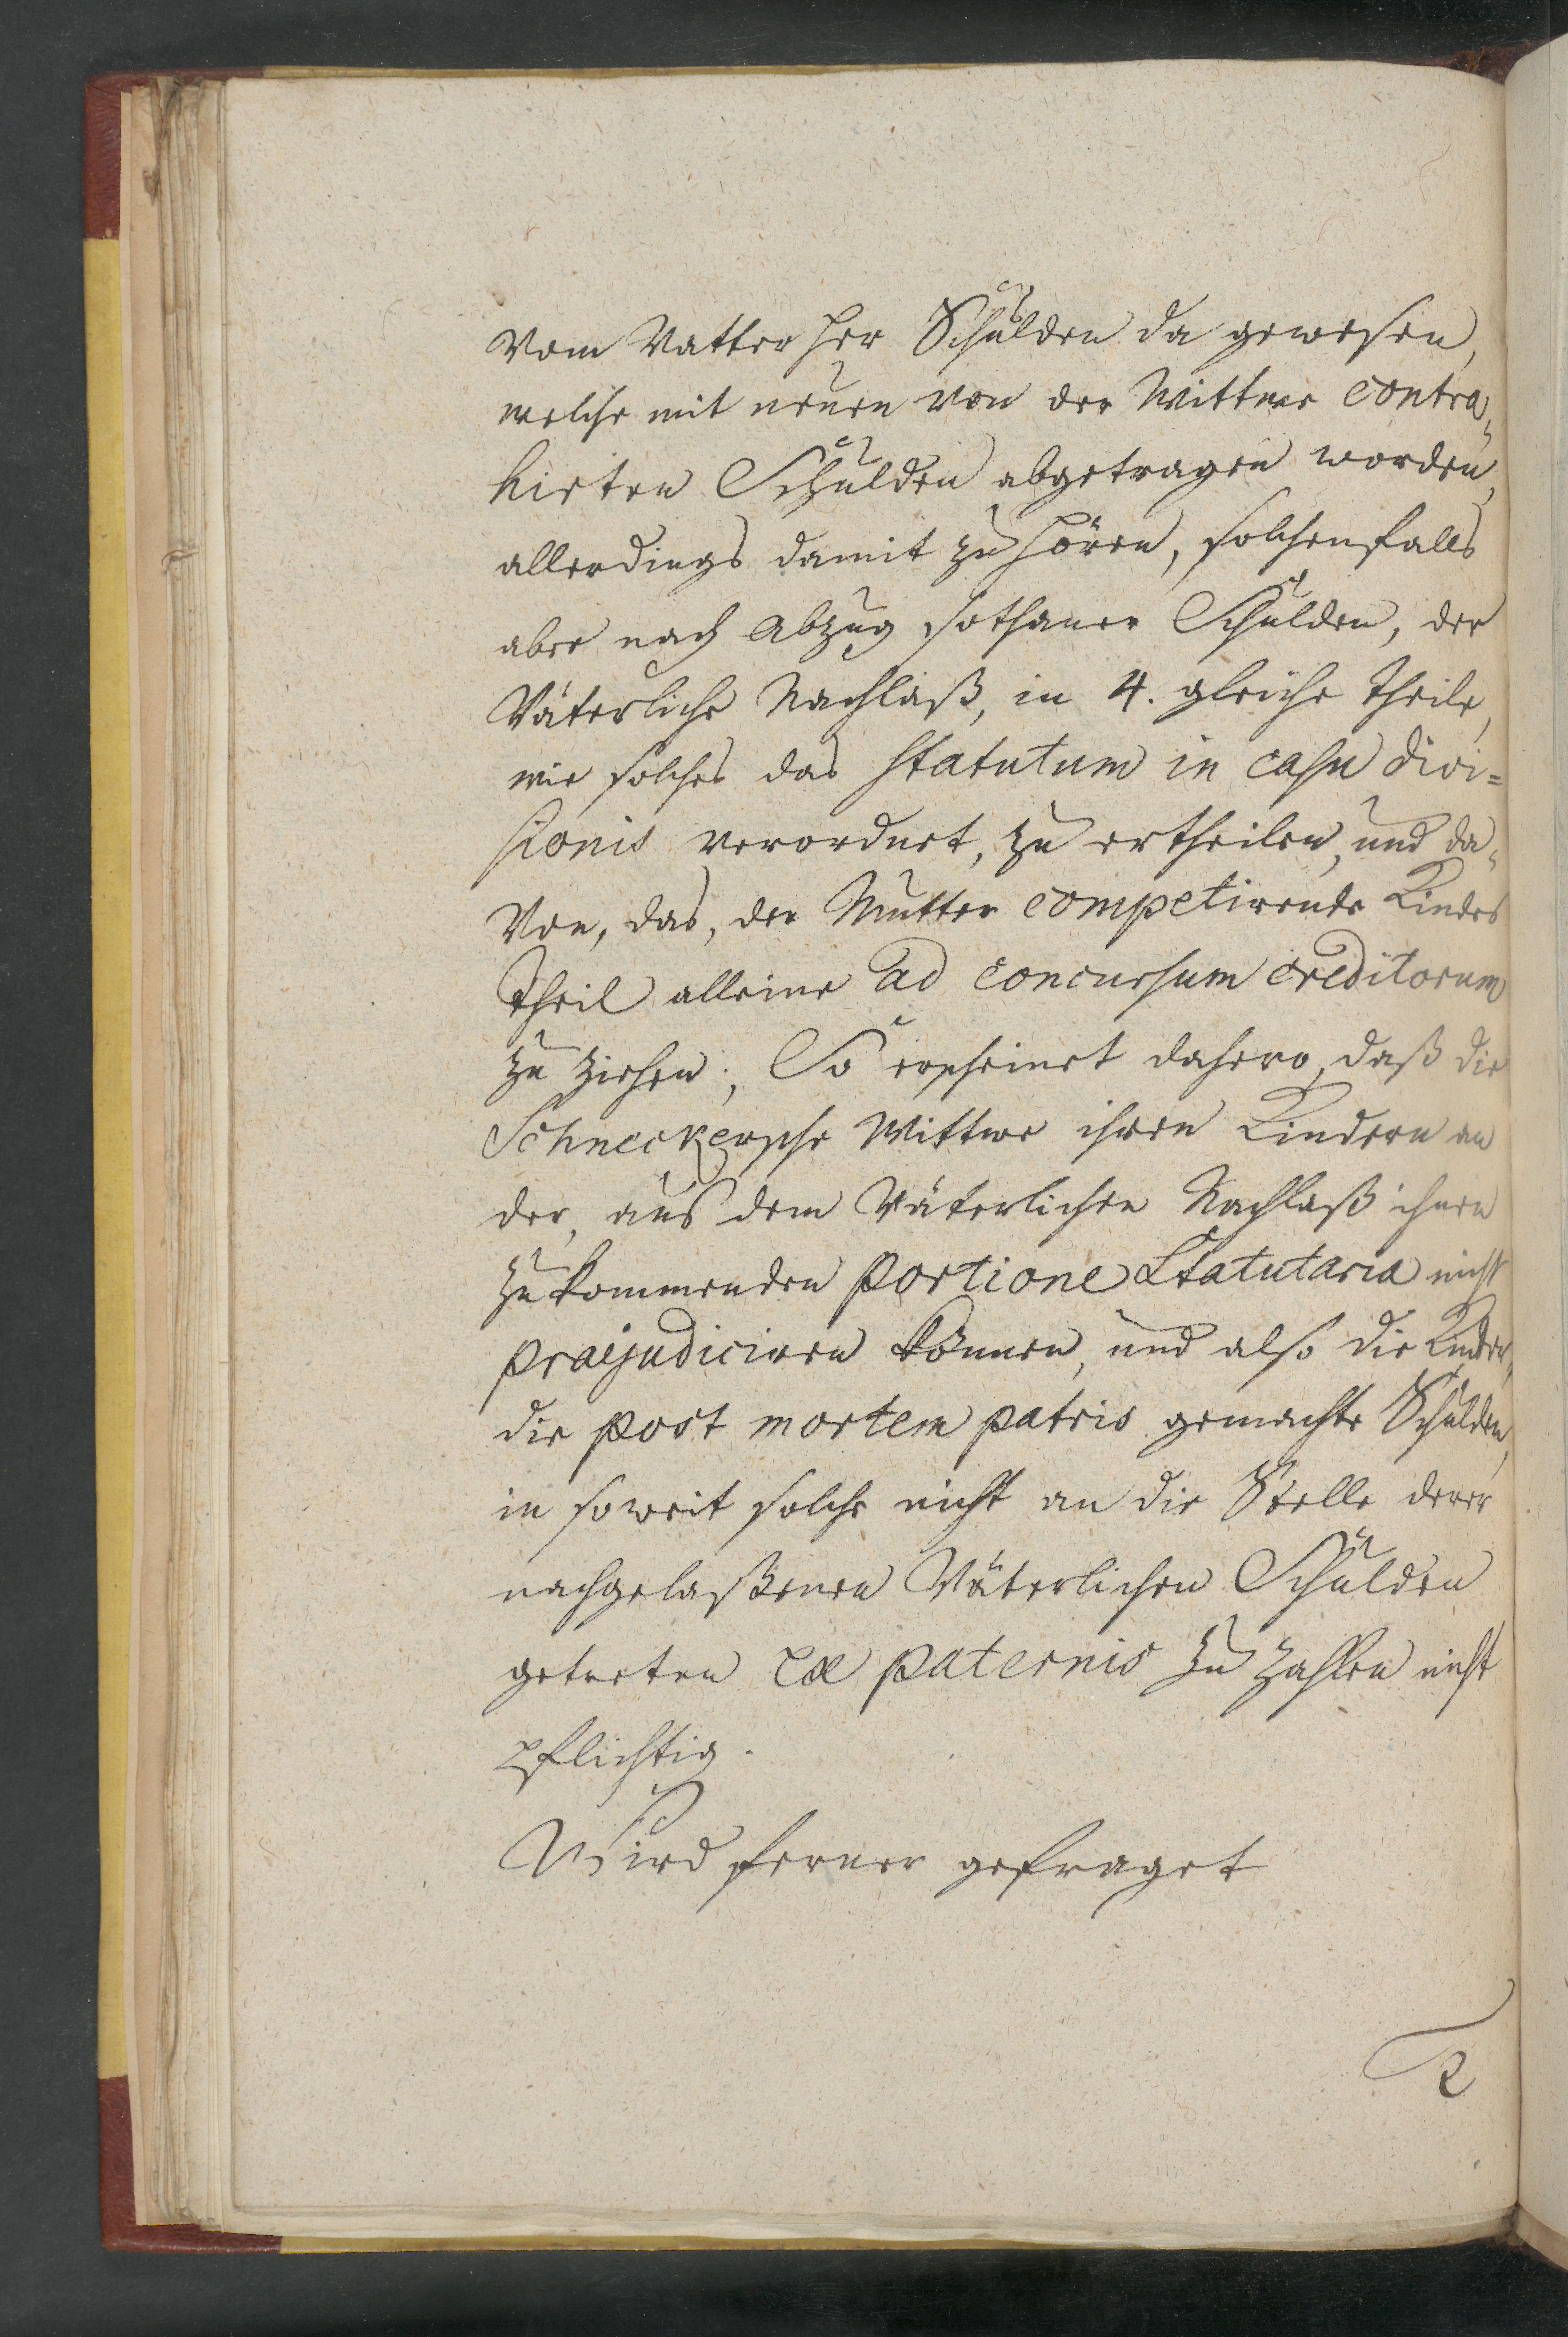 Vom Vatter her Schulden da gewesen,
welche mit neuen von der Wittwe contra„
hirten Schulden abgetragen worden,
allerdings damit zu hören, solchenfalls
aber nach Abzug sothaner Schulden, der
Väterliche Nachlaß, in 4. gleiche theile,
wie solches das statutum in casu divi=
sionis verordnet, zu ertheilen, und da„
Von, das, der Mutter competirende Kindes
theil alleine ad concursum creditorum
zu ziehen; So erscheinet dahero, daß die
Schneckersche Wittwe ihren Kindern an
der, aus dem Väterlichen Nachlaß ihnen
zukommenden portione Statutaria nicht
praejudiciren können, und also die Kinder,
die post mortem patris gemachte Schulden,
in soweit solche nicht an die Stelle derer
nachgelaßenen Väterlichen Schulden
getreten ex paternis zu zahlen nicht
pflichtig.
Wird ferner gefraget